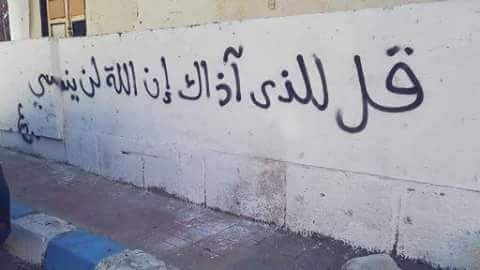 قل للذى آذاك إن اللة لن ينسي